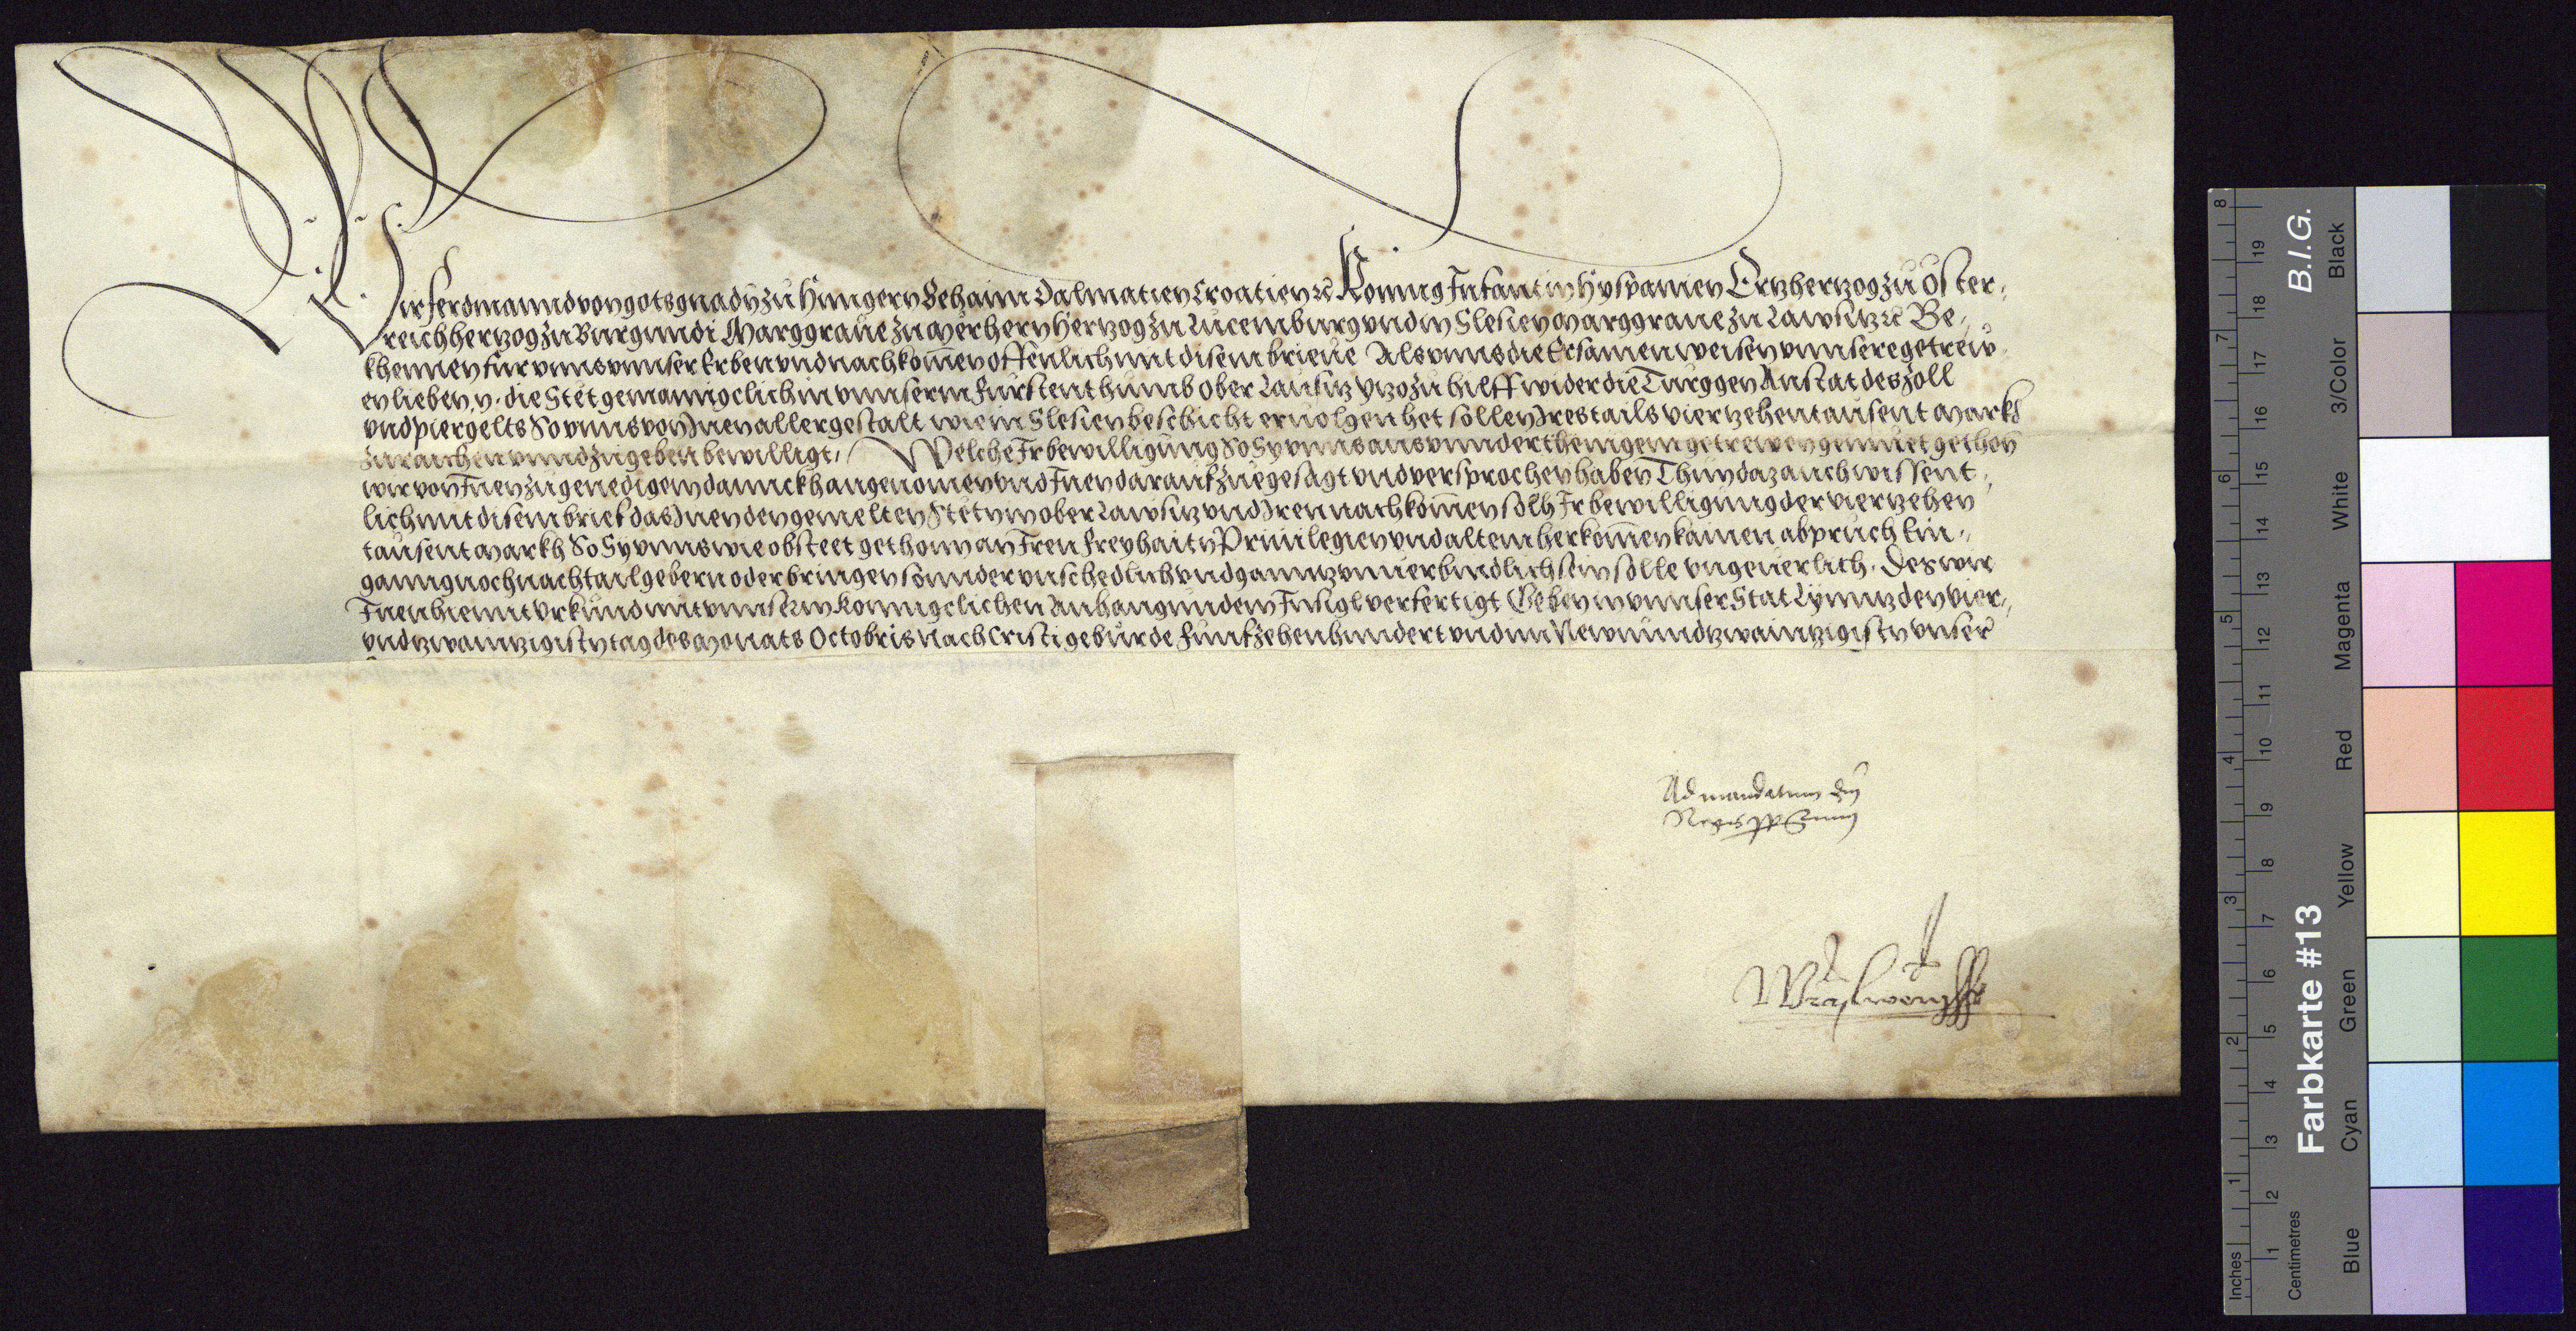 Wir Ferdinannd von gots gnadn zu Hungern Behaim Dalmatien Croatien ꝛc Konnig Infant in Hyspanien Ertzhertzog zu Oster-
reich hertzog zu Burgundi Marggraue zu Merhern Hertzog zu Lucemburg vnd in Slesien Marggraue zu Lawsitz ꝛc Be-
khennen für vnns vnnser Erben vnd nachkom̄en offenlich mit disem brieue Als vnns die Ersamen weisen vnnsere getrew-
en lieben. N. die Stet gemainigclich in vnnserm Fürstenthumb Ober Lausitz ytzo zu hilff wider die Turggen Anstat des Zoll
vnd piergelts So vnns von Inen aller gestalt wie in Slesien beschicht eruolgen het sollen Ires tails viertzehentausent Markh
zuraichen vnnd zugeben bewilligt, Welche Ir bewilligung So Sy vnns aus vnnderthenigem getrewen gemuet gethon
wir von Inen zu genedigem dannckh angenomen vnd Inen darauf zuegesagt vnd versprochen haben Thun daz auch wissent-
lich mit disem brief das Inen den gemelten Stetn in ober Lawsitz vnd Iren nachkom̄en solh Ir bewilligung der viertzehen
tausent Markh So Sy vnns wie obsteet gethon an Iren Freyhaitn Priuilegien vnd altem herkom̄en kainen abpruch Ein-
ganng noch nachtail gebern oder bringen sonnder vnschedlich vnd ganntz vnuerbindlich sein solle vngeuerlich. Des wir
Inen hiemit Vrkund mit vnnserm Konnigclichen Anhanngunden Insigl verfertigt Geben in vnnser Stat Lynntz den vier-
vndtzwaintzigistn tag des Monats Octobris Nach Cristi geburde Funfzehenhundert vnd im Newnundtzwaintzigistn vnser
Ad mandatum dn̄i
Regis pp̄rium